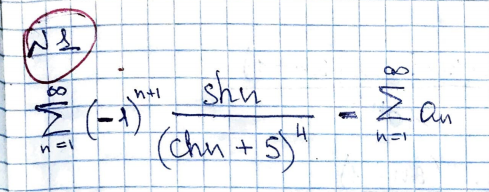 №1
∑_{n=1}^{∞} (-1)^{n+1} \frac{shn}{(chn + 5)^4} = ∑_{n=1}^{∞} a_n